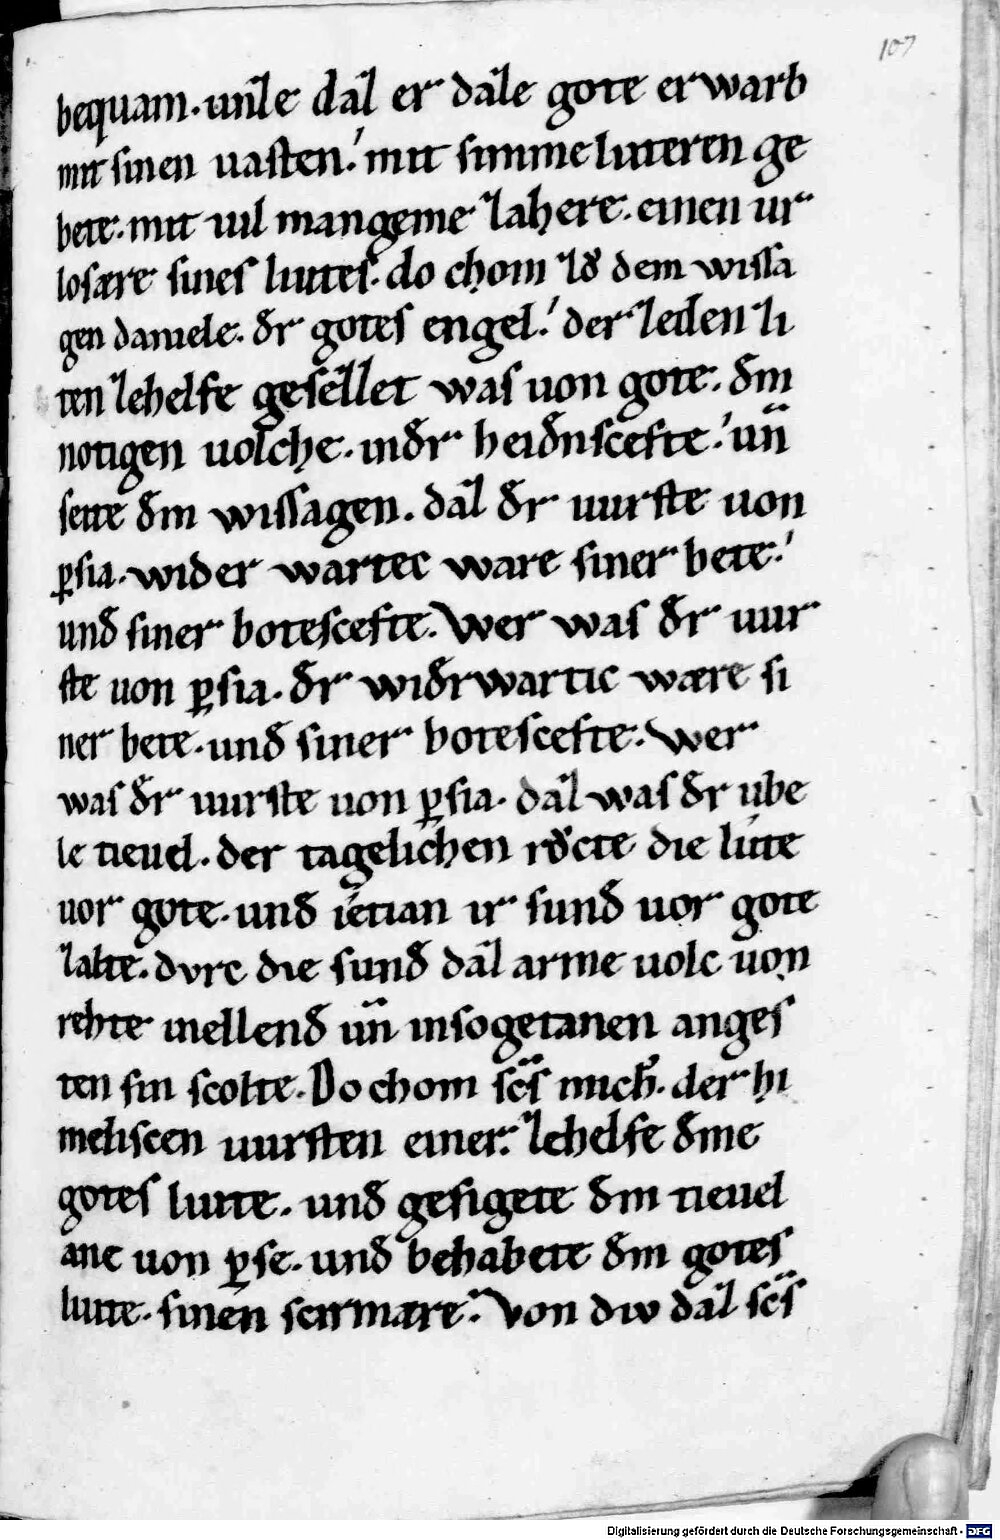 107
bequam. unze daz er daze gote erwarb
mit sinen uasten. mit sinme luteren ge
bete. mit uil mangeme zahere. einen ur
losære sines liutes. do chom zů dem wissa
gen daniele. đr gotes engel. der ze den zi
ten zehelfe gesezzet was uon gote. đm
notigen uolche. in đr heiđnscefte. uñ
seite đm wissagen. daz đr uurste uon
ꝑsia. wider wartec ware siner bete.
unđ siner botescefte. Wer was đr uur
ste uon ꝑsia. đr wiđrwartic wære si
ner bete. unđ siner botescefte. Wer
was đr uurste uon ꝑsia. daz was đr ube
le tieuel. der tagelichen růcte die lúte
uor gote. unđ ietian ir sunđ uor gote
zalte. dvrc die sunđ daz arme uolc uon
rehte in ellenđ uñ in sogetanen anges
ten sin scolte. Do chom scs̄ mich̄. der hi
meliscen uursten einer. zehelfe đme
gotes liute. unđ gesigete đm tieuel
ane uon ꝑse. unđ behabete đm gotes
liute. sinen scirmare. Von diu daz scs̄
Digitalisierung gefördert durch die Deutsche Forschungsgemeinschaft - DFG